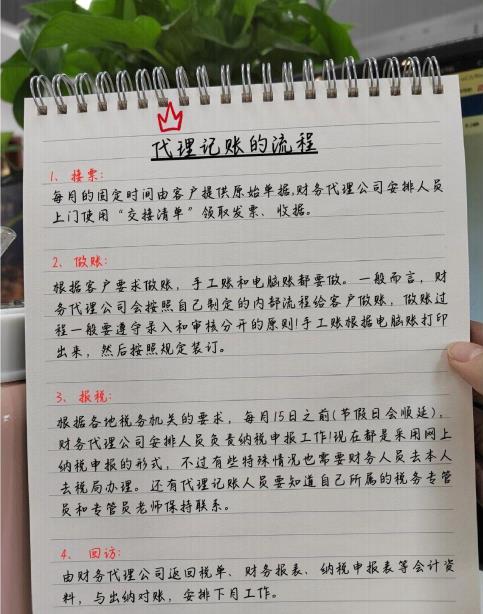 代理记账的流程
1、接票:
每月的固定时间由客户提供原始单据,财务代理公司安排人员
上门使用“交接清单”领取发票、收据。
2、做账:
根据客户要求做账，手工账和电脑账都要做。一般而言，财
务代理公司会按照自己制定的内部流程给客户做账，做账过
程一般要遵守录入和审核分开的原则!手工账根据电脑账打印
出来，然后按照规定装订。
3、报税:
根据各地税务机关的要求，每月15日之前(节假日会顺延),
财务代理公司安排人员负责纳税申报工作!现在都是采用网上
纳税申报的形式，不过有些特殊情况也需要财务人员去本人
去税局办理。还有代理记账人员要知道自己所属的税务专管
员和专管员老师保持联系。
4、回访:
由财务代理公司返回税单、财务报表、纳税申报表等会计资
料，与出纳对账，安排下月工作。